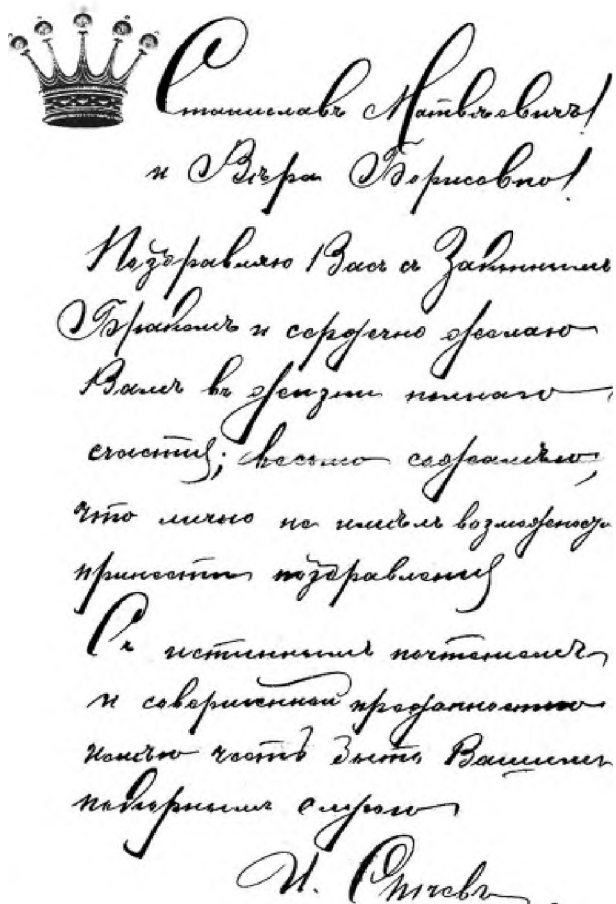 Станиславъ Матвѣевичъ!
и Вѣра Борисовна!
Поздравляю Васъ съ Законнымъ
Бракомъ и сердечно желаю
Вамъ въ жизни полнаго
счастія; весьма сожалѣю,
что лично не имѣлъ возможности
принести поздравленія
Съ истиннымъ почтеніемъ
и совершенной преданностью
имѣю честь быть Вашимъ
покорнымъ слугою
И.